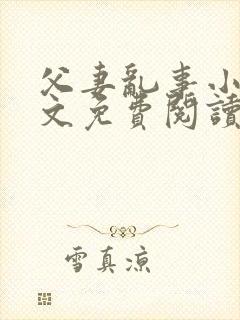 父妻亂事小
文免費閱讀
雪真涼